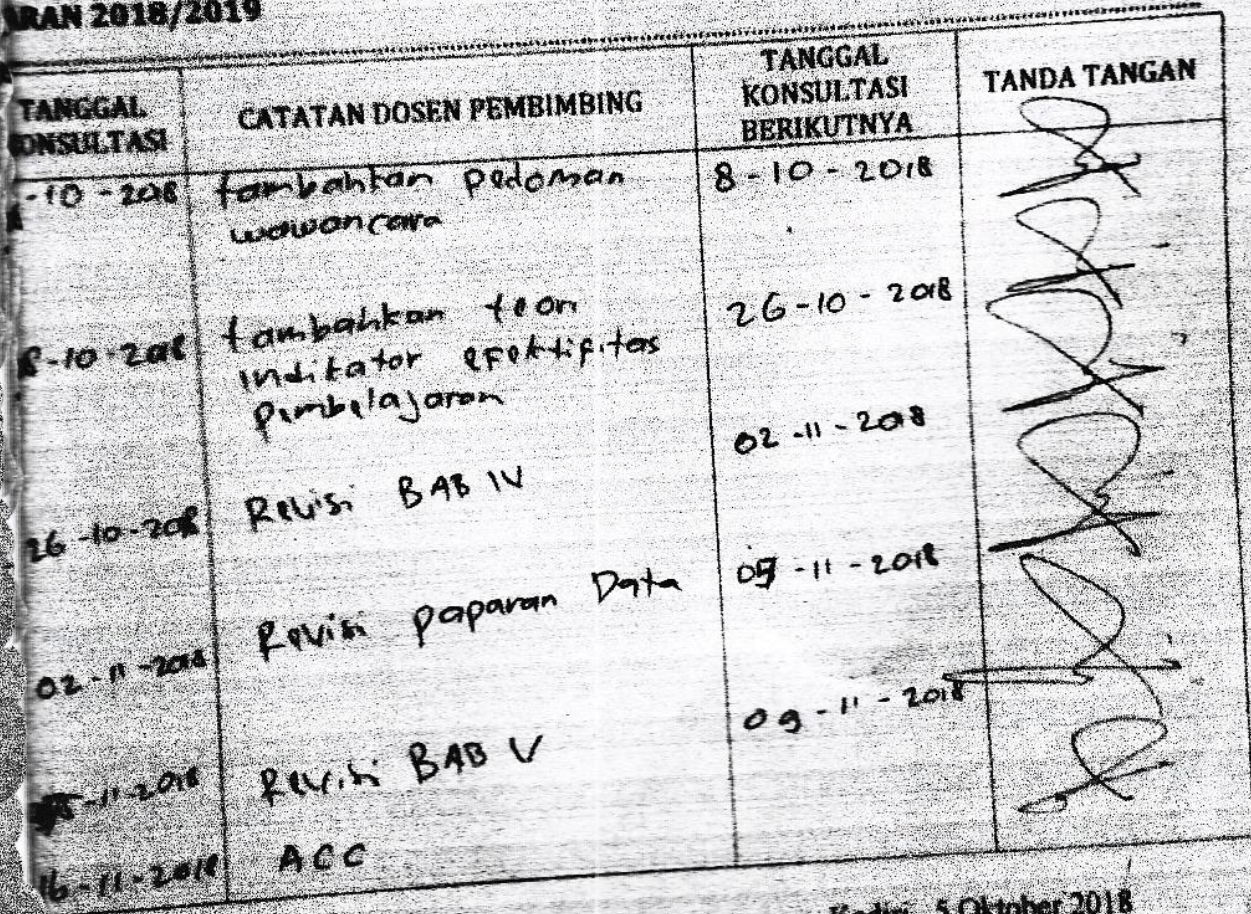 ARAN 2018/2019
TANGGAL
ONSULTASI
CATATAN DOSEN PEMBIMBING
TANGGAL
KONSULTASI
BERIKUTNYA
TANDA TANGAN
-10-2018
tambahkan pedoman
wawancara
8-10-2018
8-10-2018
tambahkan teori
indikator efektifitas
pembelajaran
26-10-2018
26-10-2018
Revisi BAB IV
02-11-2018
02-11-2018
Revisi paparan Data
-11-2018
-11-2018
Revisi BAB V
09-11-2018
16-11-2018
ACC
5 Oktober 2018